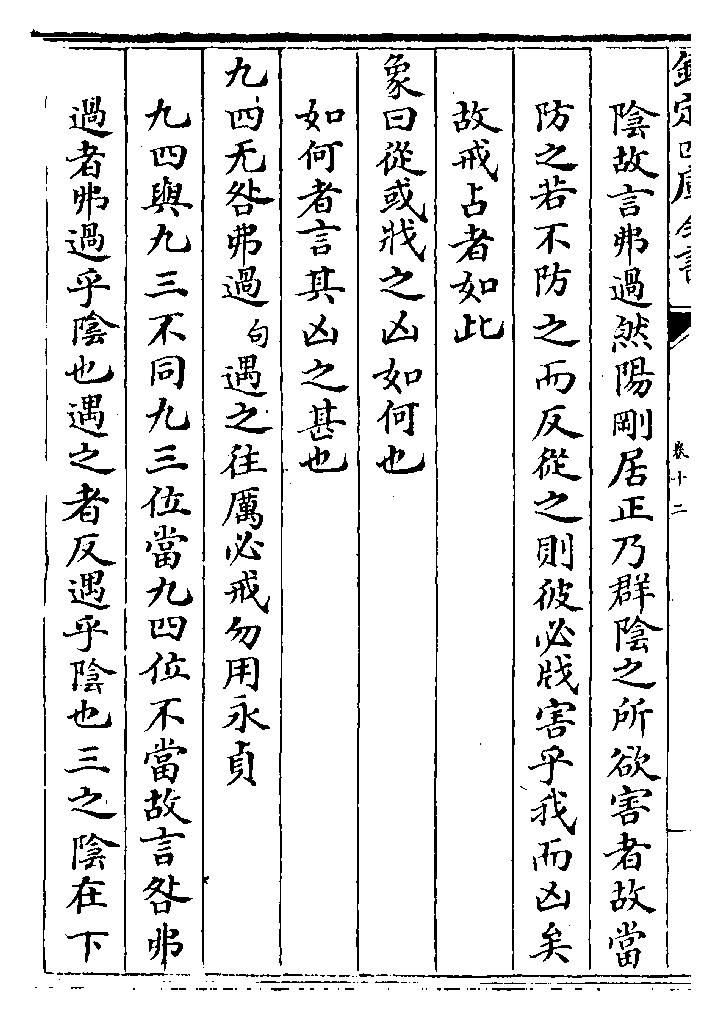 欽定四庫全書
卷十二
陰故言弗過然陽剛居正乃群陰之所欲害者故當
防之若不防之而反從之則彼必戕害乎我而凶矣
故戒占者如此
象曰從或戕之凶如何也
如何者言其凶之甚也
九四无咎弗過句遇之往厲必戒勿用永貞
九四與九三不同九三位當九四位不當故言咎弗
過者弗過乎陰也遇之者反遇乎陰也三之陰在下